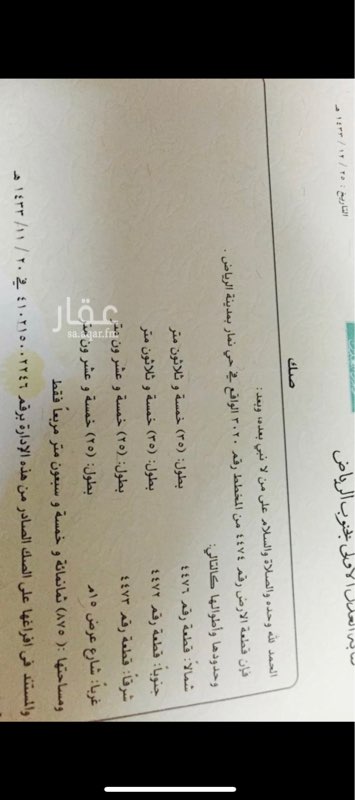 كتابة العدل الأولى بجنوب الرياض
التاريخ : ٢٥ / ١٢ / ١٤٣٣ هـ
صك
الحمد لله وحده والصلاة والسلام على من لا نبي بعده، وبعد:
فإن قطعة الارض رقم ٤٤٧٤ من المخطط رقم ٣٠٢٠ الواقع في حي نمار بمدينة الرياض .
وحدودها وأطوالها كالتالي:
شمالاً: قطعة رقم ٤٤٧٦ بطول: (٣٥) خمسة و ثلاثون متر
جنوباً: قطعة رقم ٤٤٧٢ بطول: (٣٥) خمسة و ثلاثون متر
شرقاً: قطعة رقم ٤٤٧٣ بطول: (٢٥) خمسة و عشرون متر
غرباً: شارع عرض ١٥م بطول: (٢٥) خمسة و عشرون متر
ومساحتها : (٨٧٥) ثمانمائة و خمسة و سبعون متر مربعاً فقط
والمستند في افراغها على الصك الصادر من هذه الإدارة برقم ٤١٠٢١٥٠٠٢٢٤٦ في ٢٠ / ١١ / ١٤٣٣ هـ
عقار
sa.aqar.fm